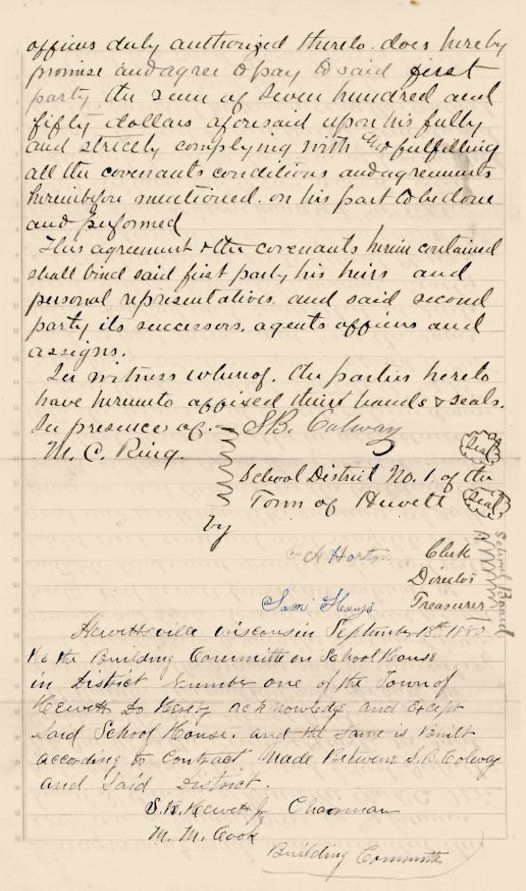 officers duly authorized thereto. does hereby
promise and agree to pay to said first
party the sum of Seven hundred and
fifty dollars aforesaid upon his fully
and strictly complying with and fulfilling
all the covenants conditions and agreements
hereinbefore mentioned. on his part to be done
and performed
This agreement & the covenants herein contained
shall bind said first party, his heirs and
personal representatives. and said second
party its successors, agents officers and
assigns.
In witness whereof. the parties hereto
have hereunto affixed their hands & seals.
In presence of.
S.B. Colway
Seal
M. C. Ring.
School District No. 1. of the
Town of Hewett
Seal
by
Horton Clerk
Director
Sam Treasurer
School Board
Hewettsville Wisconsin September 18th 1880
We the Building Committe on School House
in District number one of the Town of
Hewett Do hereby acknowledge and Except
Said School House. and the Same is Built
according to Contract. Made Between S.B. Colway
and Said District.
S. Hewett Jr Chairman
M. M. Cook
Building Committe